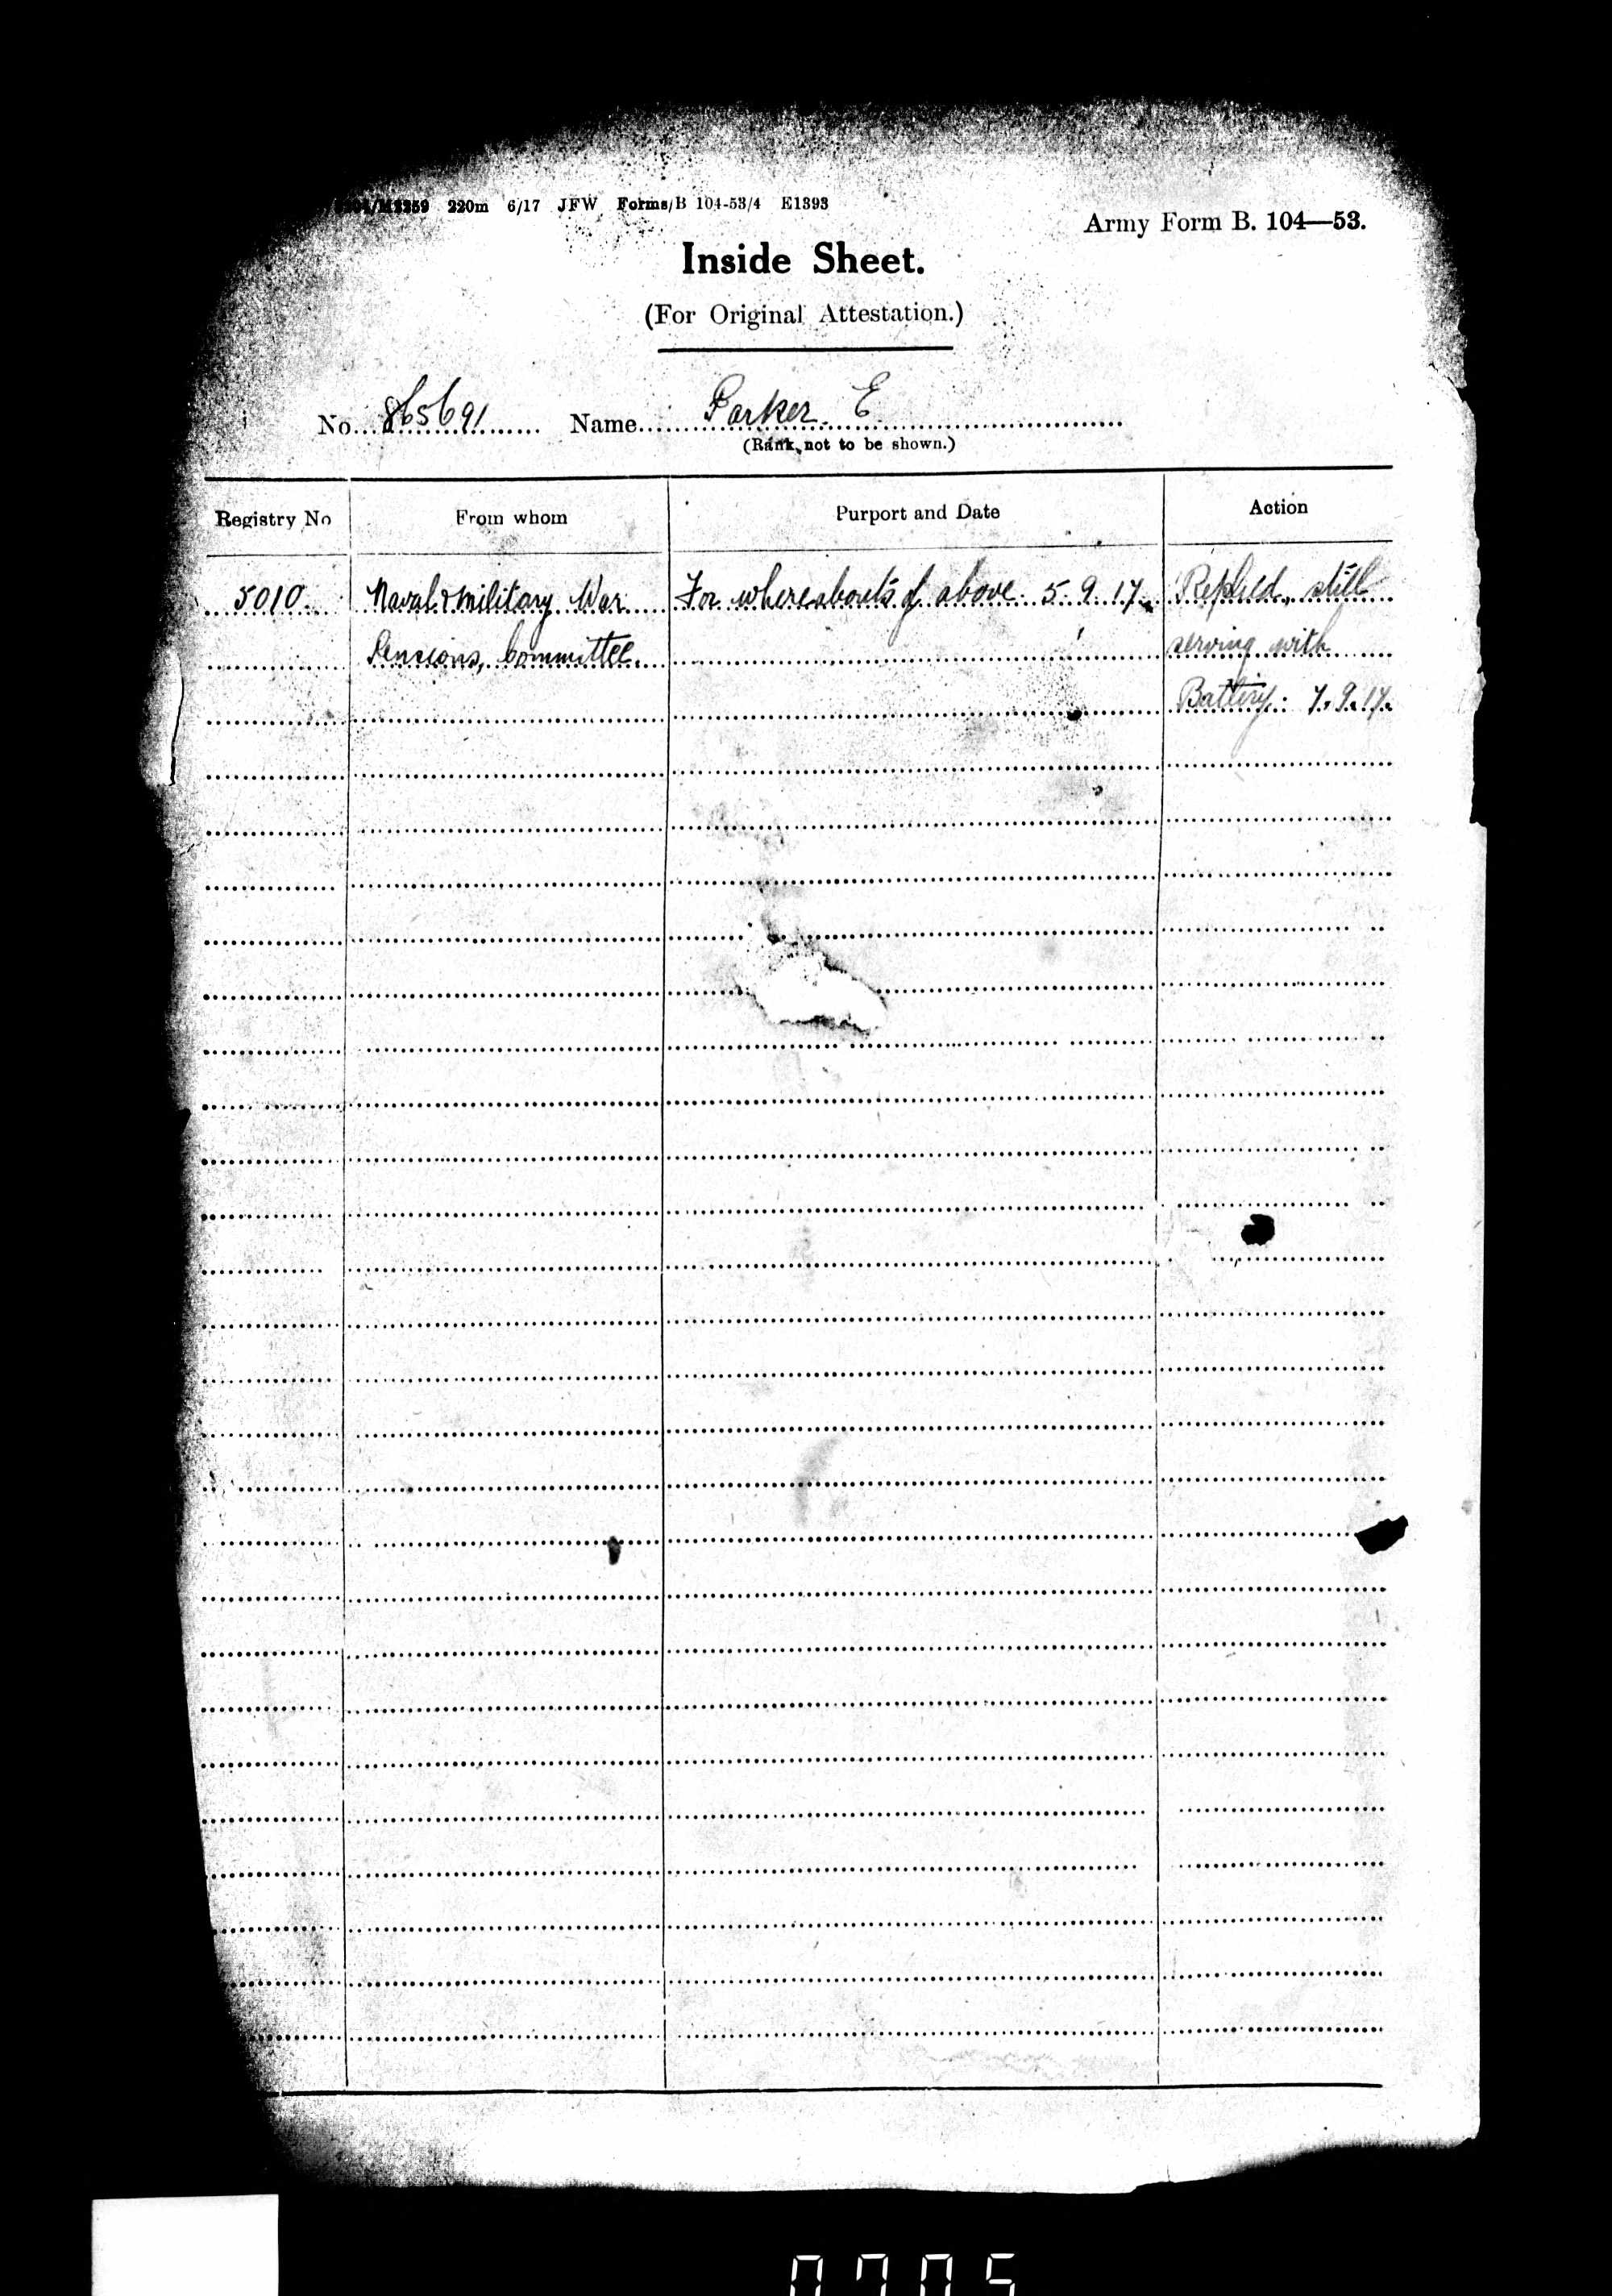 220m 6/17 JFW Forms/B 104-53/4 E1393
Army Form B. 104—53.
Inside Sheet.
(For Original Attestation.)
No. 865691 Name Parker E
(Rank not to be shown.)
Registry No From whom Purport and Date Action
5010 Naval & Military War For whereabouts of above 5.9.17. Replied, still
Pensions, Committee. serving with
Battery: 7.9.17.
0705